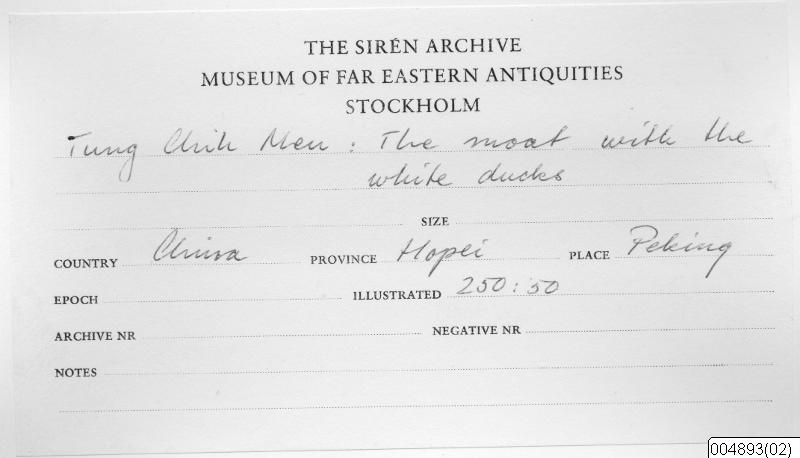 THE SIRÉN ARCHIVE
MUSEUM OF FAR EASTERN ANTIQUITIES
STOCKHOLM
Tung Chih Men : The moat with the
white ducks
SIZE
COUNTRY China PROVINCE Hopei PLACE Peking
EPOCH ILLUSTRATED 250:50
ARCHIVE NR NEGATIVE NR
NOTES
004893(02)